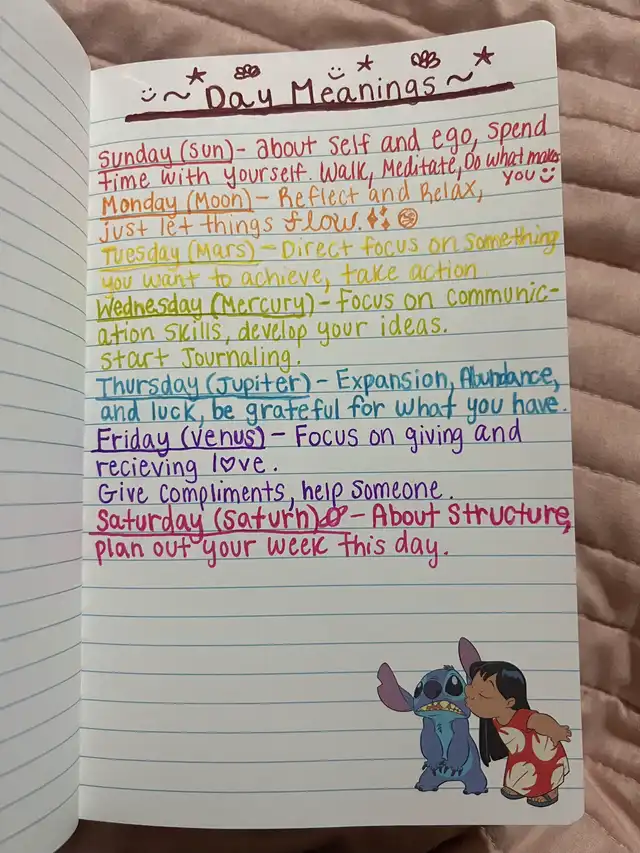 Day Meanings
Sunday (Sun) - about self and ego, spend
time with yourself. Walk, Meditate, Do what makes
you
Monday (Moon) - Reflect and Relax,
just let things flow.
Tuesday (Mars) - Direct focus on something
you want to achieve, take action
Wednesday (Mercury) - Focus on communic-
ation skills, develop your ideas.
Start Journaling.
Thursday (Jupiter) - Expansion, Abundance,
and luck, be grateful for what you have.
Friday (Venus) - Focus on giving and
recieving love.
Give compliments, help someone.
Saturday (Saturn) - About Structure,
plan out your week this day.